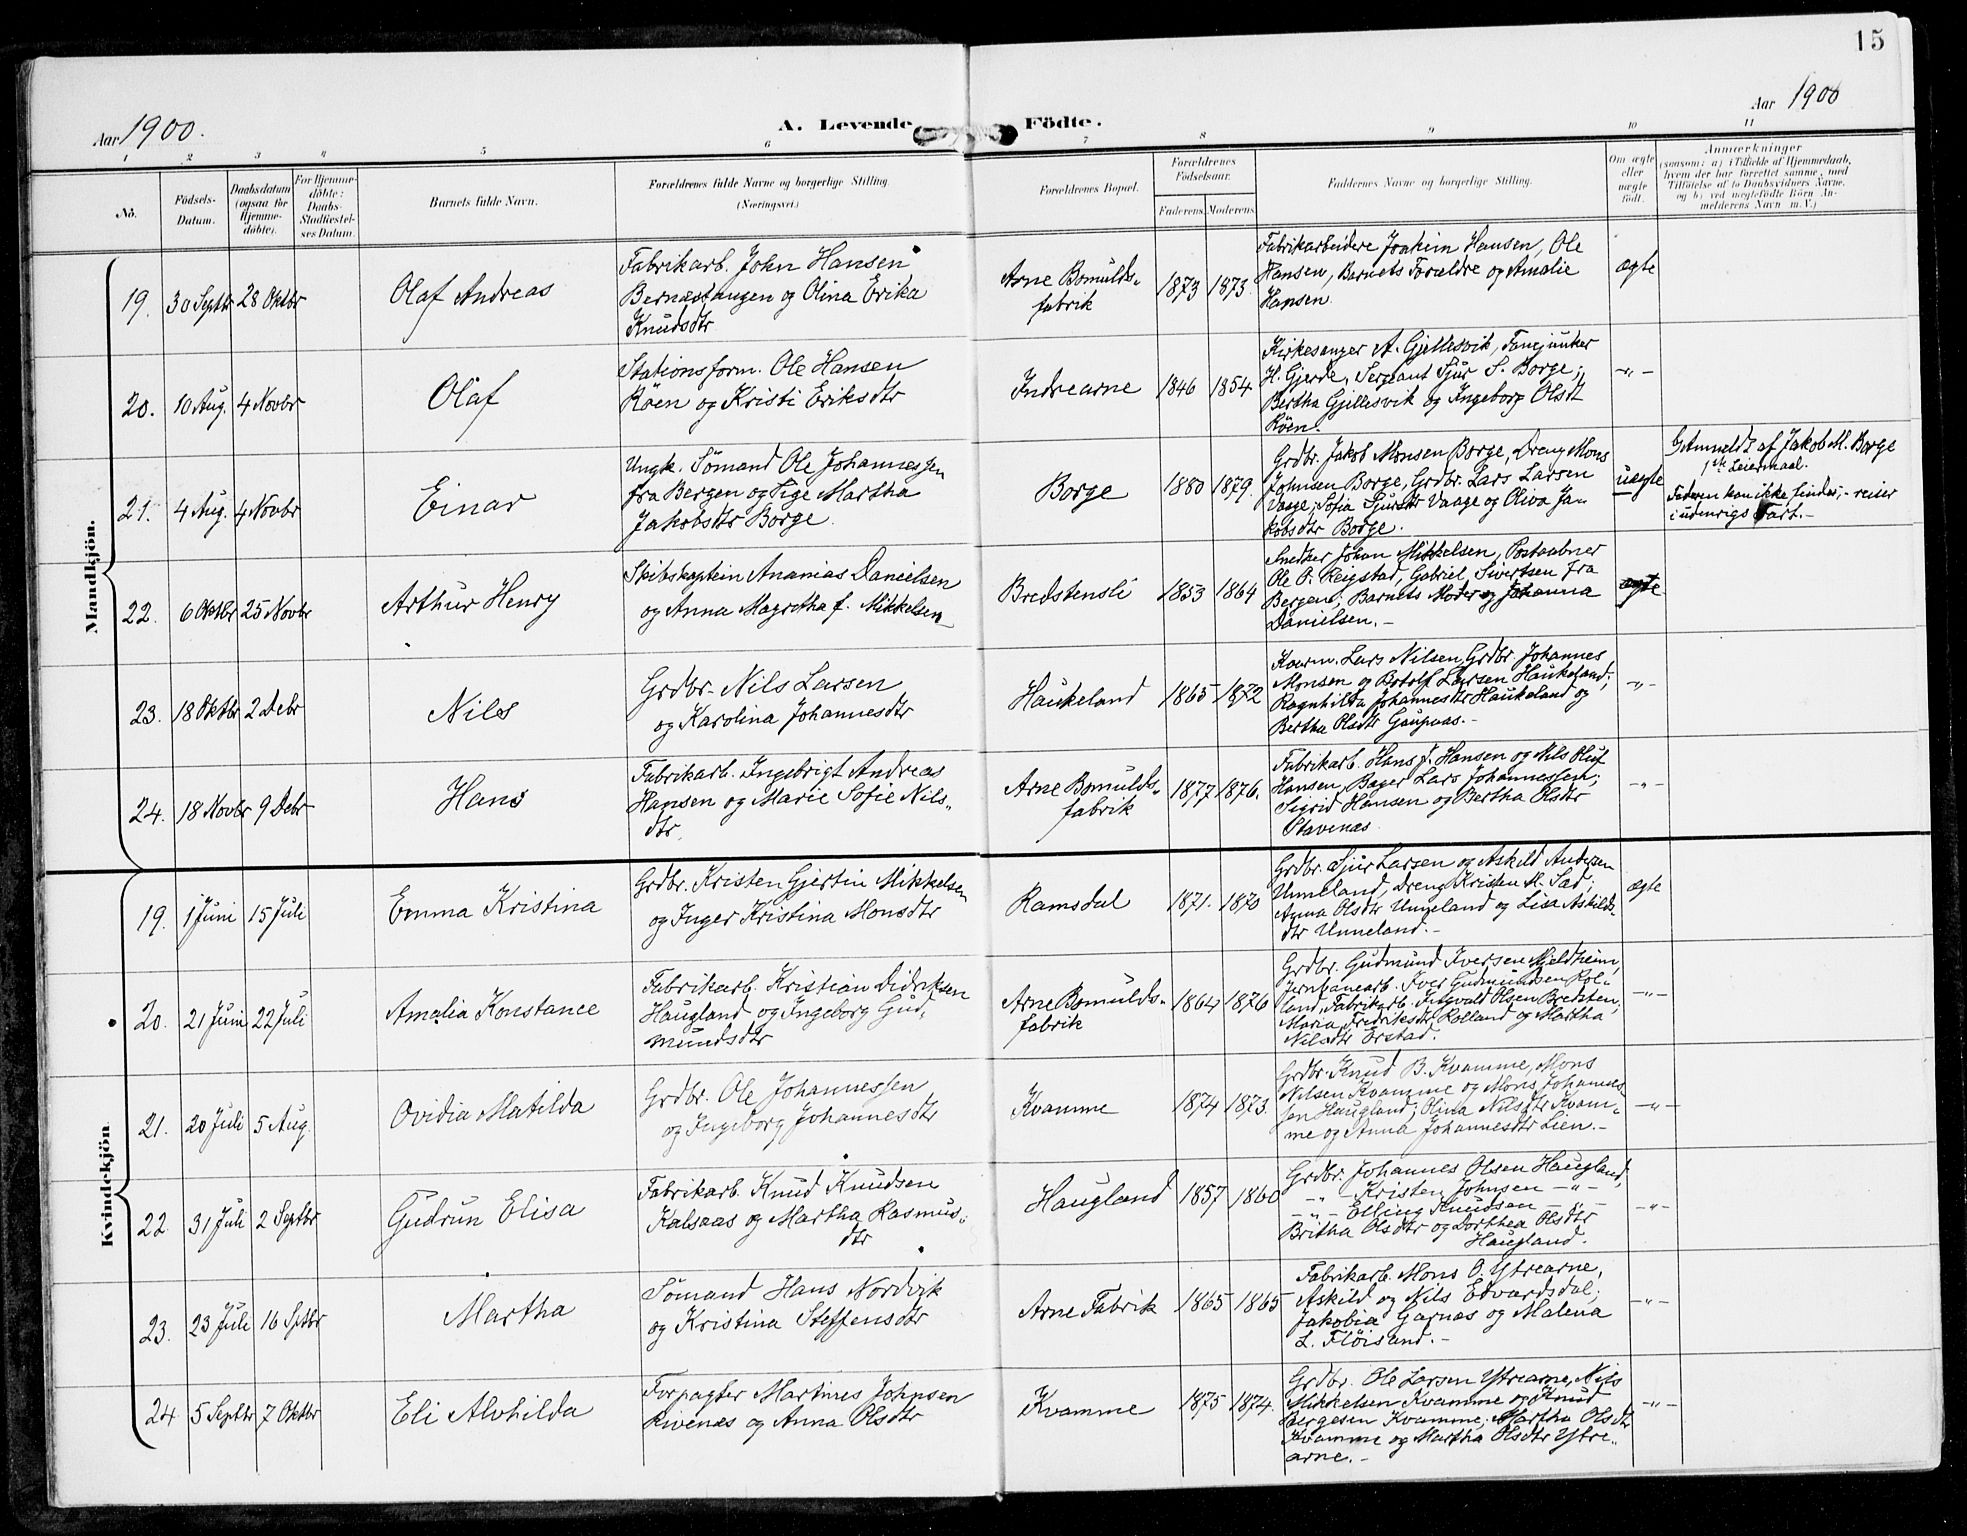 15
Aar 1900.
A. Levende
Födte.
Aar 1900
1 2 3 4 5 6 7 8 9 10 11
No.
Födsels-
Datum.
Daabsdatum
(ogsaa for
Hjemme-
döbte).
For Hjemme-
döbte:
Daabs-
Stadfæstel-
ses Datum.
Barnets fulde Navn.
Forældrenes fulde Navne og borgerlige Stilling.
(Næringsvei.)
Forældrenes Bopæl.
Forældrenes
Födselsaar.
Faderens. Moderens.
Faddernes Navne og borgerlige Stilling.
Om ægte
eller
uægte
födt.
Anmærkninger
(saasom: a) i Tilfælde af Hjemmedaab,
hvem der har forrettet samme, med
Tilföielse af to Daabsvidners Navne,
og b) ved uægtefödte Börn An-
melderens Navn m. V.)
Mandkjön.
19. 30 Septbr 28 Oktbr
Olaf Andreas
Fabrikarb. John Hansen
Bernæstangen og Olina Erika
Knudsdtr
Arne Bomulds-
fabrik
1873 1873.
Fabrikarbeidere Joakim Hansen, Ole
Hansen, Barnets Forældre og Amalie
Hansen.
ægte
20. 10 Aug. 4 Novbr
Olaf
Stationsform. Ole Hansen
Röen og Kristi Eriksdtr
Indrearne
1846 1854
Kirkesanger A. Gjellesvik, Fanejunker
H. Gjerde, Sergeant Sjur S. Borge;
Bertha Gjellesvik og Ingeborg Olsdt
Röen.
-"-
21. 4 Aug. 4 Novbr
Einar
Ungk. Sömand Ole Johannessen
fra Bergen og Pige Martha
Jakobsdtr Borge.
Borge
1880 1879.
Grdbr. Jakob Monsen Borge, Dreng Mons
Johnsen Borge, Grdbr. Lars Larsen
Vaage; Sofia Sjursdtr Vaage og Oliva Ja-
kobsdtr Borge.
uægte
Anmeldt af Jakob M. Borge
1ste Leiermaal.
Faderen kan ikke findes; - reiser
i udenrigs Fart. -
22. 6 Oktbr 25 Novbr
Arthur Henry
Skibskaptein Ananias Danielsen
og Anna Magretha f. Mikkelsen
Bredstensli
1853 1864
Snedker Johan Mikkelsen, Postaabner
Ole O. Reigstad, Gabriel Sivertsen fra
Bergen; Barnets Moder og Johanna
Danielsen. -
ægte
23. 18 Oktbr 2 Debr
Nils
Grdbr. Nils Larsen
og Karolina Johannesdtr
Haukeland
1865 1872
Kaarm. Lars Nilsen, Grdbr Johannes
Monsen og Botolf Larsen Haukeland;
Ragnhilda Johannesdtr Haukeland og
Bertha Olsdtr Gaupaas. -
-"-
24. 18 Novbr 9 Debr
Hans
Fabrikarb. Ingebrigt Andreas
Hansen og Marie Sofie Nils-
dtr.
Arne Bomulds-
fabrik
1877 1876.
Fabrikarb. Hans J. Hansen og Nils Oluf
Hansen, Bager Lars Johannessen;
Sigrid Hansen og Bertha Olsdtr
Stavenæs
-"-
Kvindekjön
19. 1 Juni 15 Juli
Emma Kristina
Grdbr. Kristen Gjertin Mikkelsen
og Inger Kristina Monsdtr
Ramsdal
1871. 1870
Grdbr. Sjur Larsen og Askild Andersen
Unneland, Dreng Kristen M. Sæd;
Anna Olsdtr Unneland og Lisa Askilds-
dtr Unneland. -
ægte
20. 21 Juni 22 Juli
Amalia Konstance
Fabrikarb. Kristian Didriksen
Haugland og Ingeborg Gud-
mundsdtr
Arne Bomulds-
fabrik
1864 1876
Grdbr. Gudmund Iversen Mjeldheim,
Jernbanearb. Iver Gudmundsen Rol-
land, Fabrikarb. Ingvald Olsen Bredsten,
Maria Fredriksdtr Rolland og Martha
Nilsdtr Erstad.
-"-
21. 20 Juli 5 Aug.
Ovidia Matilda
Grdbr. Ole Johannessen
og Ingeborg Johannesdtr
Kvamme
1874 1873.
Grdbr. Knud B. Kvamme, Mons
Nilsen Kvamme og Mons Johannes-
sen Haugland; Olina Nilsdtr Kvam-
me og Anna Johannesdtr Lien. -
-"-
22. 31 Juli 2 Septbr
Gudrun Elisa
Fabrikarb. Knud Knudsen
Kalsaas og Martha Rasmus-
dtr
Haugland
1857 1860
Grdbr. Johannes Olsen Haugland,
-"- Kristen Johnsen -"-
-"- Elling Knudsen -"-
Britha Olsdtr og Dorthea Olsdtr
Haugland.
-"-
23. 23 Juli 16 Sptbr
Martha
Sömand Hans Nordvik
og Kristina Steffensdtr
Arne Fabrik
1865 1865
Fabrikarb. Mons O. Ytrearne,
Askild og Nils Edvardsdal;
Jakobia Garnæs og Malena
L. Flöisand. -
-"-
24 5 Septbr 7 Oktbr
Eli Alvhilda
Forpagter Martines Johnsen
Rivenæs og Anna Olsdtr
Kvamme
1875 1874.
Grdbr. Ole Larsen Ytrearne, Nils
Mikkelsen Kvamme og Knud
Bergesen Kvamme; Martha Olsdtr
Kvamme og Martha Olsdtr Ytre-
arne. -
-"-